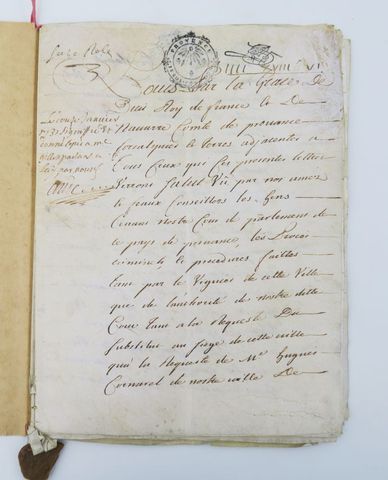 PROVENCE
Louis Par la Grace De
Dieu Roy de france Et De
Nauarre Comte de prouance
forcalquier Et Terres adjacentes a
Tous Ceux que Ces presentes lettres
Verront Salut Vû par nos amez
Et feaux Conseillers les Gens
Tenans nostre Cour de parlement de
Ce pays de prouance, les Procez
criminels Et procedures faittes
Tant par le Viguier de cette Ville
que de l'authorité de nostre ditte
Cour Tant a la Requeste Du
Substitut au siege de cette ville
qu'a la Requeste de Me Hugues
de nostre ville De